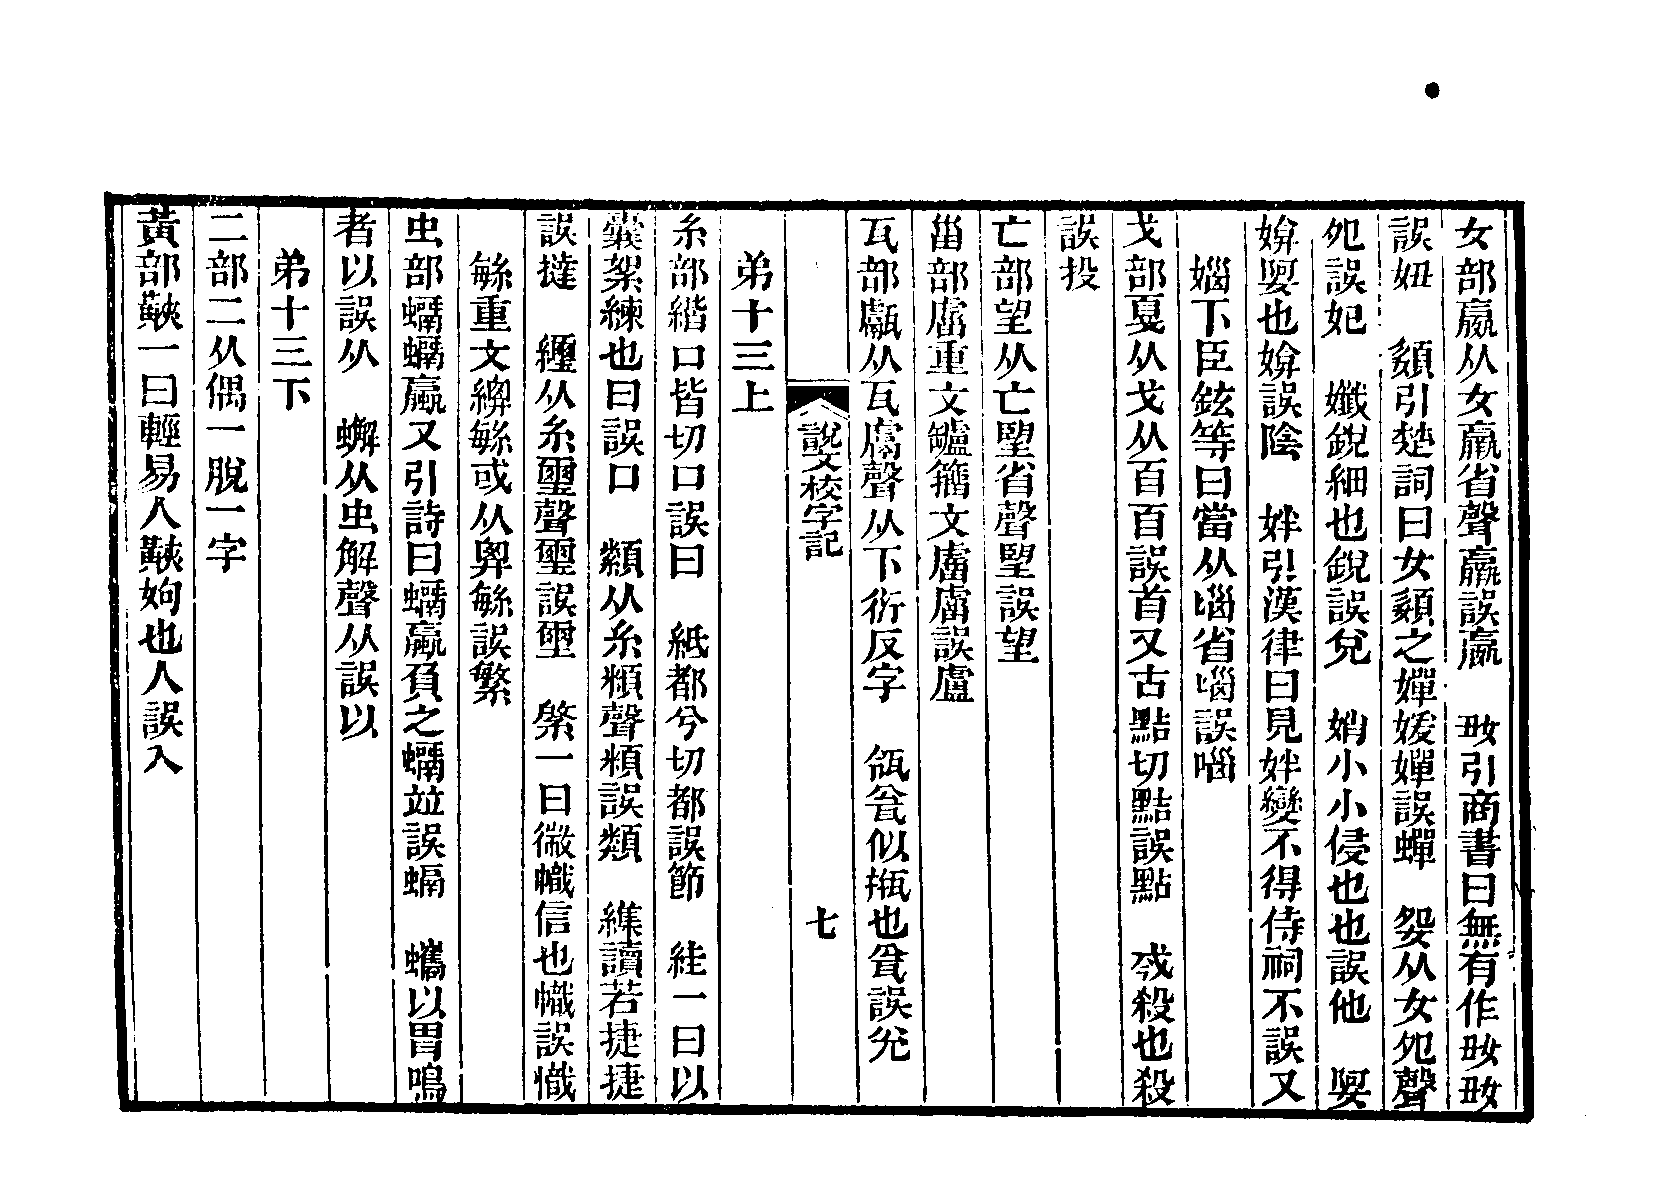 女部嬴从女𣎆省聲𣎆誤嬴　㚼引商書曰無有作㚼㚼
誤妞　嬃引楚詞曰女嬃之嬋媛嬋誤蟬　妴从女夗聲
夗誤妃　孅銳細也銳誤兌　娋小小侵也也誤他　娿
媕娿也媕誤陰　姅引漢律曰見姅變不得侍祠不誤又
㛴下臣鉉等曰當从𡿺省𡿺誤㗓
戈部戛从戈从百百誤首又古黠切黠誤點　㦵殺也殺
誤投
亡部望从亡朢省聲朢誤望
甾部𤮐重文罏籀文𧆨𧆨誤盧
瓦部甗从瓦鬳聲从下衍反字　瓵瓮似瓶也瓮誤㼚
說文校字記
七
弟十三上
糸部緒口皆切口誤曰　紙都兮切都誤節　絓一曰以
囊絮練也曰誤口　纇从糸頪聲頪誤類　緁讀若捷捷
誤撻　纆从糸壐聲壐誤壐　綮一曰微幟信也幟誤懺
緐重文𦆯緐或从㚔緐誤繁
虫部蠣蠣蠃又引詩曰蠣蠃負之蠣竝誤螎　蠵以胃鳴
者以誤从　蠏从虫解聲从誤以
弟十三下
二部二从偶一脫一字
黃部䵌一曰輕易人䵌姁也人誤入